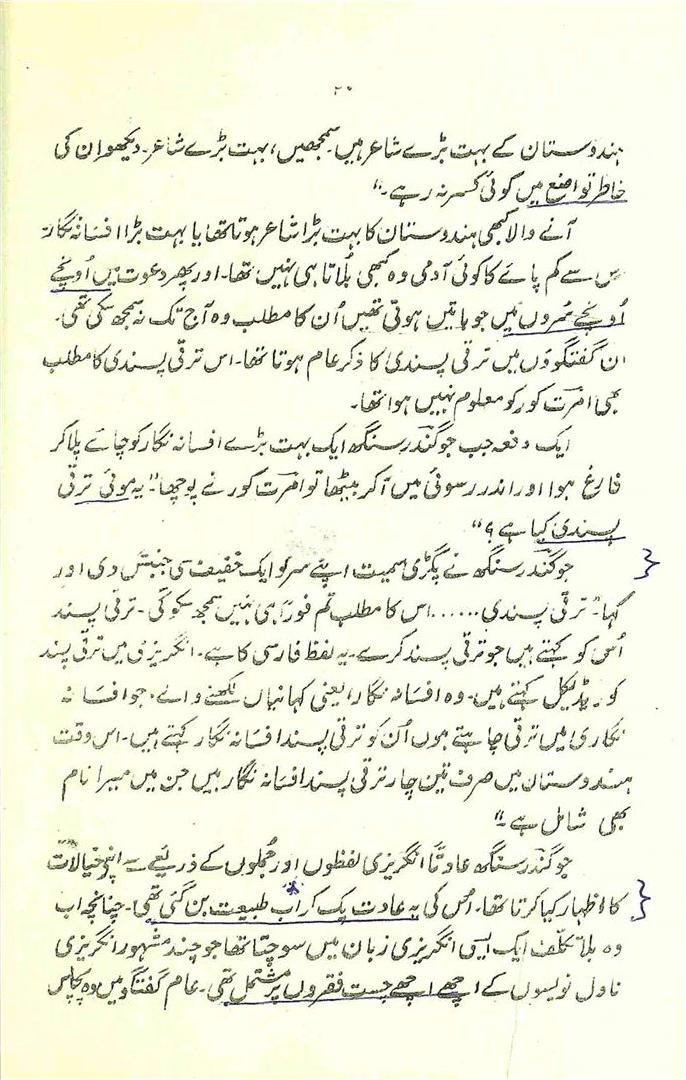 ۲۰
ہندوستان کے بہت بڑے شاعر ہیں۔ سمجھیں، بہت بڑے شاعر۔ دیکھو ان کی
خاطر تواضع میں کوئی کسر نہ رہے۔"
آنے والا کبھی ہندوستان کا بہت بڑا شاعر ہوتا تھا یا بہت بڑا افسانہ نگار۔
اس سے کم پائے کا کوئی آدمی وہ کبھی بُلاتا ہی نہیں تھا۔ اور پھر دعوت میں اُونچے
اُونچے سُروں میں جو باتیں ہوتی تھیں اُن کا مطلب وہ آج تک نہ سمجھ سکی تھی۔
ان گفتگوؤں میں ترقی پسندی کا ذکر عام ہوتا تھا۔ اس ترقی پسندی کا مطلب
بھی امرت کور کو معلوم نہیں ہوا تھا۔
ایک دفعہ جب جوگندر سنگھ ایک بہت بڑے افسانہ نگار کو چائے پلا کر
فارغ ہوا اور اندر رسوئی میں آکر بیٹھا تو امرت کور نے پوچھا۔ "یہ موئی ترقی
پسندی کیا ہے؟"
جوگندر سنگھ نے پگڑی سمیت اپنے سر کو ایک خفیف سی جنبش دی اور
کہا۔ "ترقی پسندی ...... اس کا مطلب تم فوراً ہی نہیں سمجھ سکو گی۔ ترقی پسند
اُس کو کہتے ہیں جو ترقی پسند کرے۔ یہ لفظ فارسی کا ہے۔ انگریزی میں ترقی پسند
کو ریڈیکل کہتے ہیں۔ وہ افسانہ نگار، یعنی کہانیاں لکھنے والے، جو افسانہ
نگاری میں ترقی چاہتے ہوں اُن کو ترقی پسند افسانہ نگار کہتے ہیں۔ اس وقت
ہندوستان میں صرف تین چار ترقی پسند افسانہ نگار ہیں جن میں میرا نام
بھی شامل ہے۔"
جوگندر سنگھ عادتاً انگریزی لفظوں اور جملوں کے ذریعے سے اپنے خیالات
کا اظہار کیا کرتا تھا۔ اُس کی یہ عادت پک کر اب طبیعت بن گئی تھی۔ چنانچہ اب
وہ بلا تکلّف ایک ایسی انگریزی زبان میں سوچتا تھا جو چند مشہور انگریزی
ناول نویسوں کے اچھے اچھے چست فقروں پر مشتمل تھی۔ عام گفتگو میں وہ پچاس